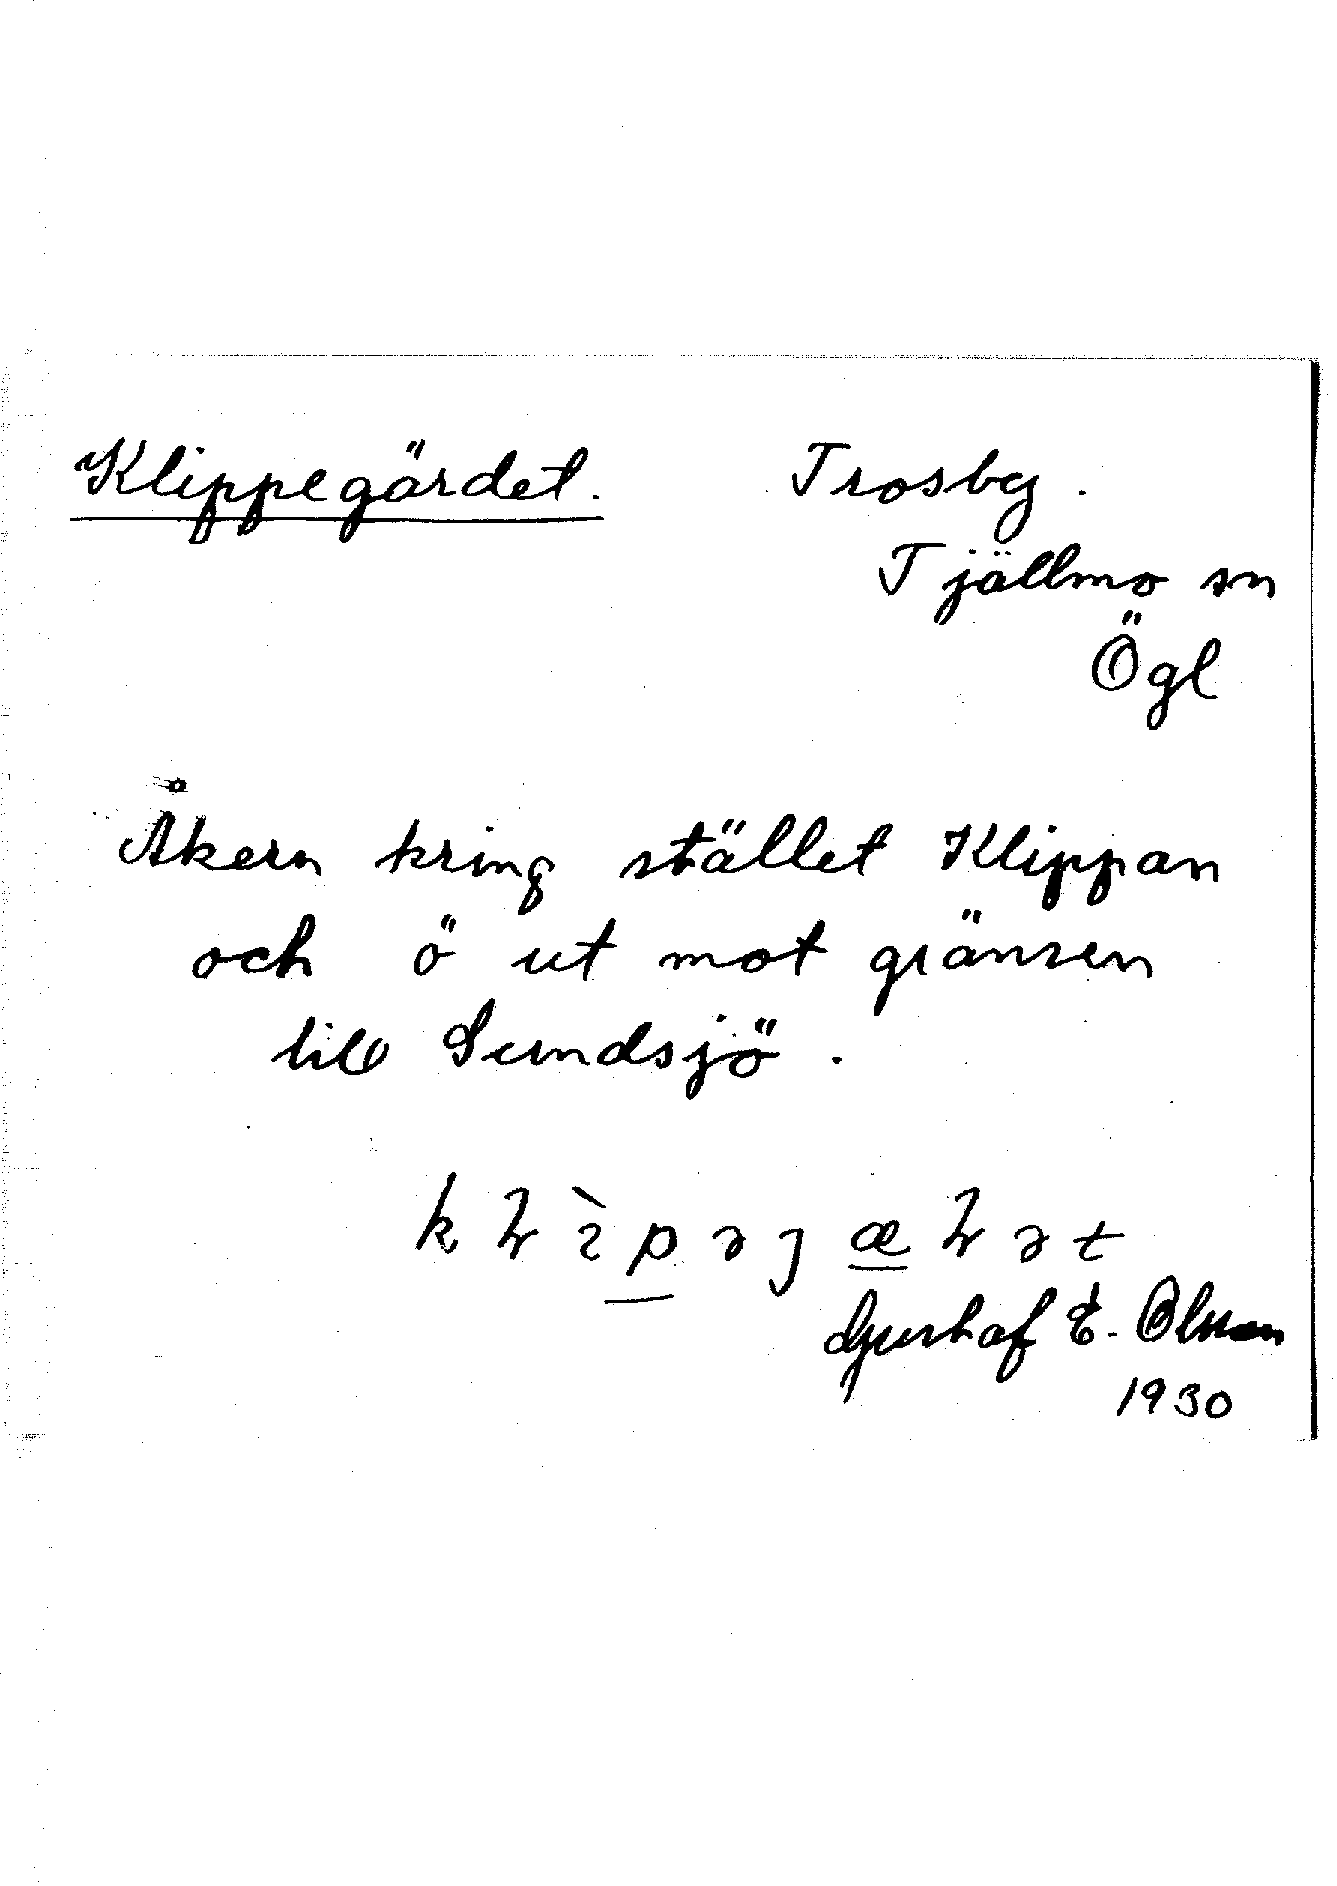 Klippegärdet. Trosby.
Tjällmo sn
Ögl
Åkern kring stället Klippan
och ö ut mot gränsen
till Sundsjö.
Gustaf E. Olsson
1930